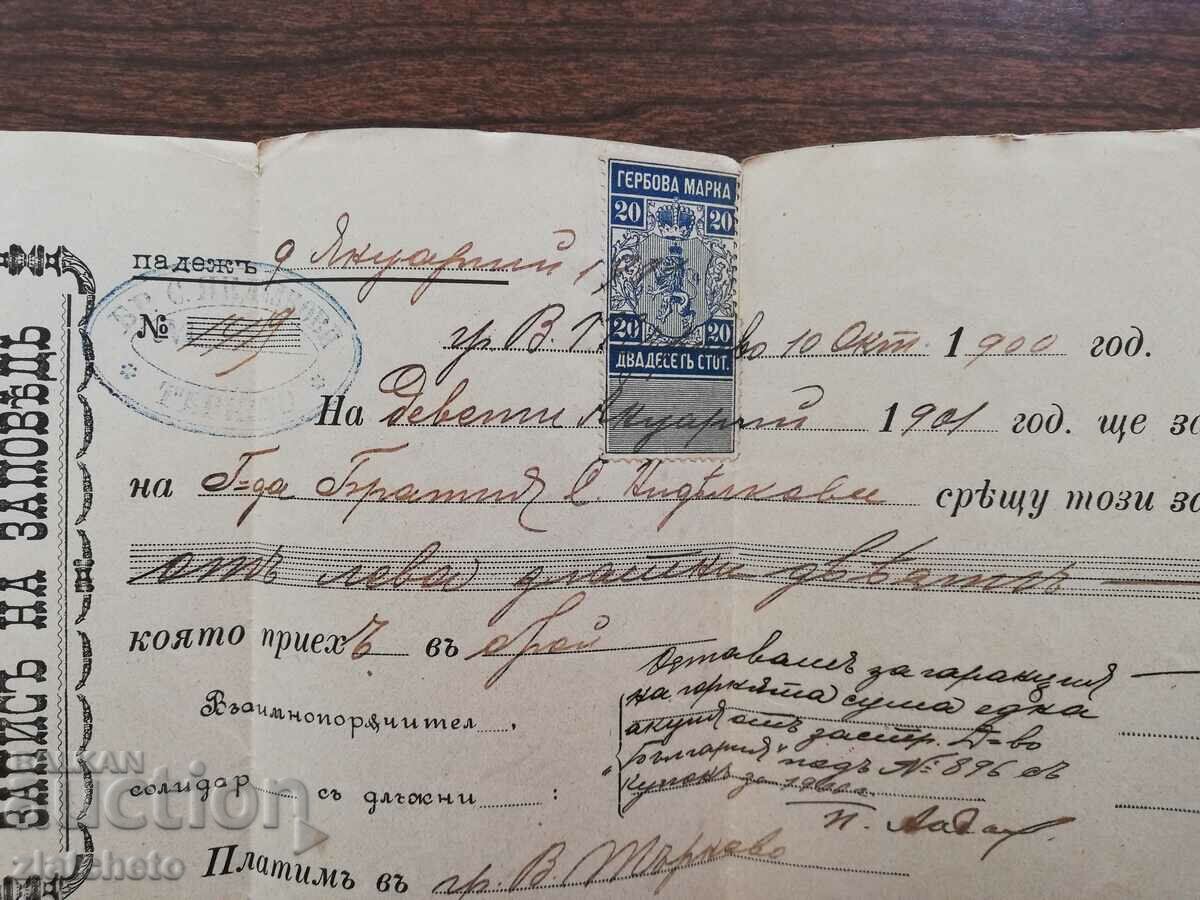 ЗАПИСЪ НА ЗАПОВѢДЬ
ГЕРБОВА МАРКА
20 20
20 20
ДВАДЕСЕТЬ СТОТ.
падежъ 9 Януарий
№ 1979
ТЪРНОВО
гр. В. 10 Окт. 1900 год.
На Девети Януарий 1901 год. ще за
на Г-да Братия С. Недѣлкови срѣщу този за
отъ лева двѣстѣ
която приехъ въ брой
Взаимнопорѫчител
солидар съ длъжни :
Оставамъ за гаранция
на горнята сума една
акция отъ застр. Д-во
"България" подъ № 896 съ
купонъ за 1900
Платимъ въ гр. В. Търново
BALKAN
auction
zlatcheto